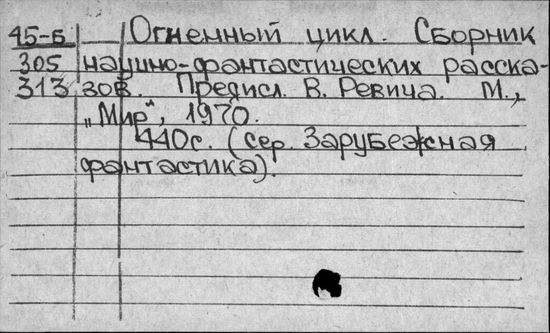 45-Б Огненный цикл. Сборник
305 научно-фантастических расска-
313 зов. Предисл. В. Ревича. М.,
„Мир", 1970.
440с. (сер. Зарубежная
фантастика).